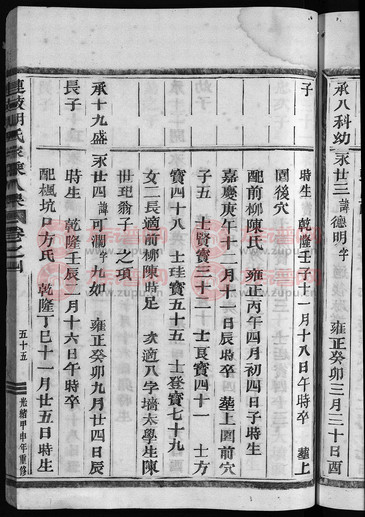 承八科幼 永廿三 諱德明字 雍正癸卯三月三十日酉
子 時生 乾隆壬子十一月十八日午時卒 塟上
園後穴
配前柳陳氏 雍正丙午四月初四日子時生
嘉慶庚午十二月十一日辰時卒 塟上園前穴
子五 士賢寳三十二 士良寳四十一 士方
寳四十八 士珪寳五十五 士登寳七十九
女二長適前柳陳時足 次適八字墻太學生陳
世玘翁子之項
承十九盛 永廿四 諱可瀾字九如 雍正癸卯九月廿四日辰
長子 時生 乾隆壬辰二月十六日午時卒
配楓坑口方氏 乾隆丁巳十一月廿五日時生
胡氏宗 卷之四 五十五 光緒甲申年重修